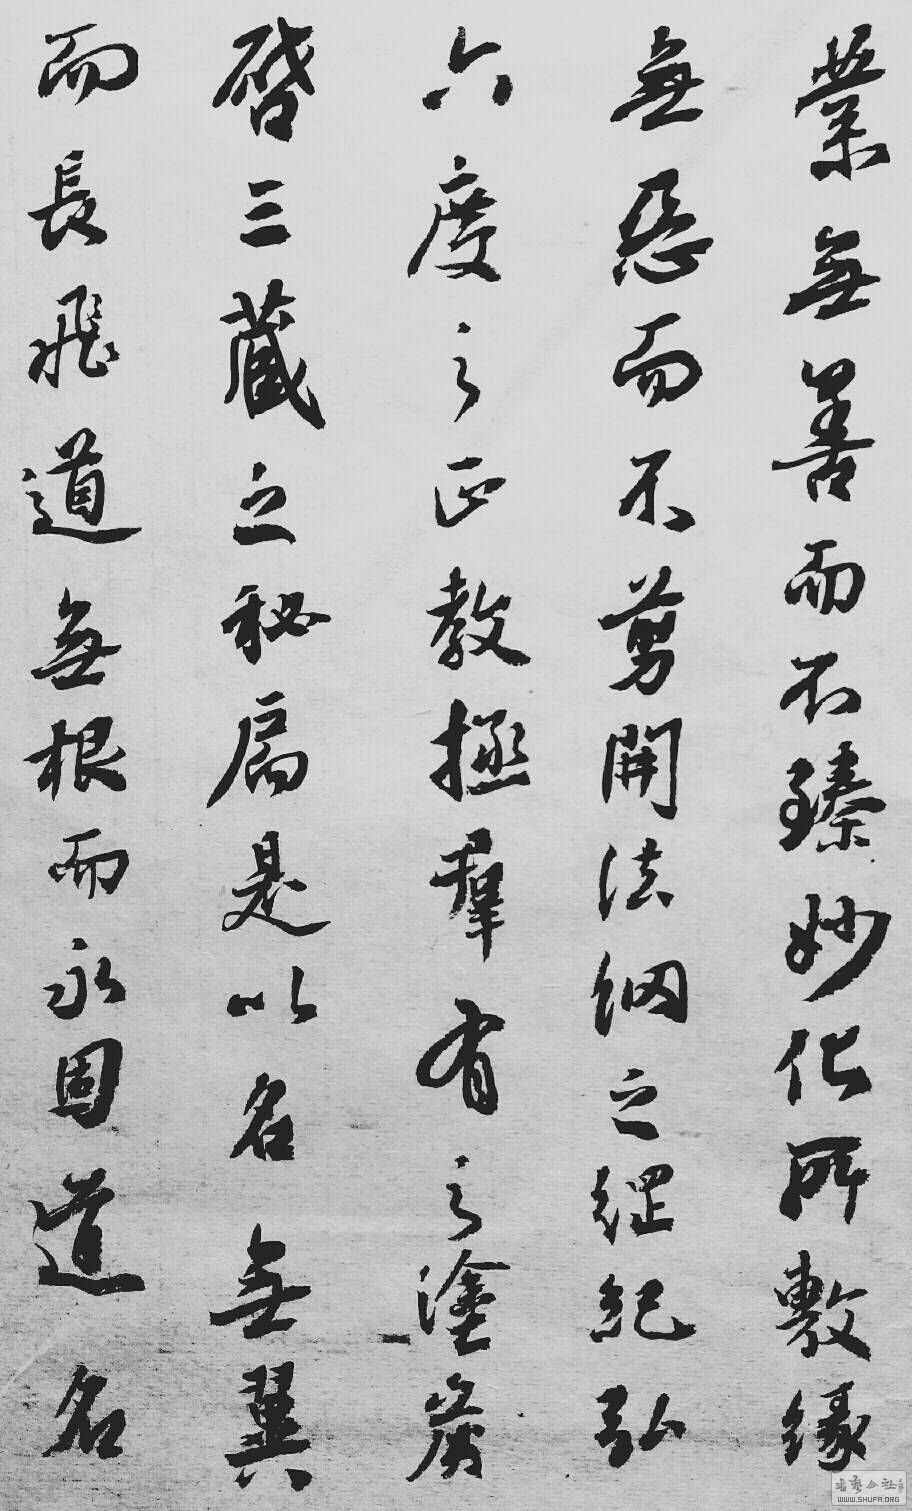 業無善而不臻妙化所敷緣
無惡而不剪開法網之綱紀弘
六度之正教拯群有之塗炭
啓三藏之秘扃是以名無翼
而長飛道無根而永固道名
WWW.SHUFA.ORG